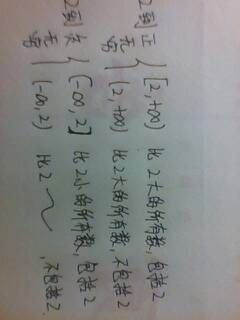 2到正无穷 { [2,+∞) 比2大的所有数,包括2
(2,+∞) 比2大的所有数,不包括2
2到负无穷 { (-∞,2] 比2小的所有数,包括2
(-∞,2) 比2～,不包括2.